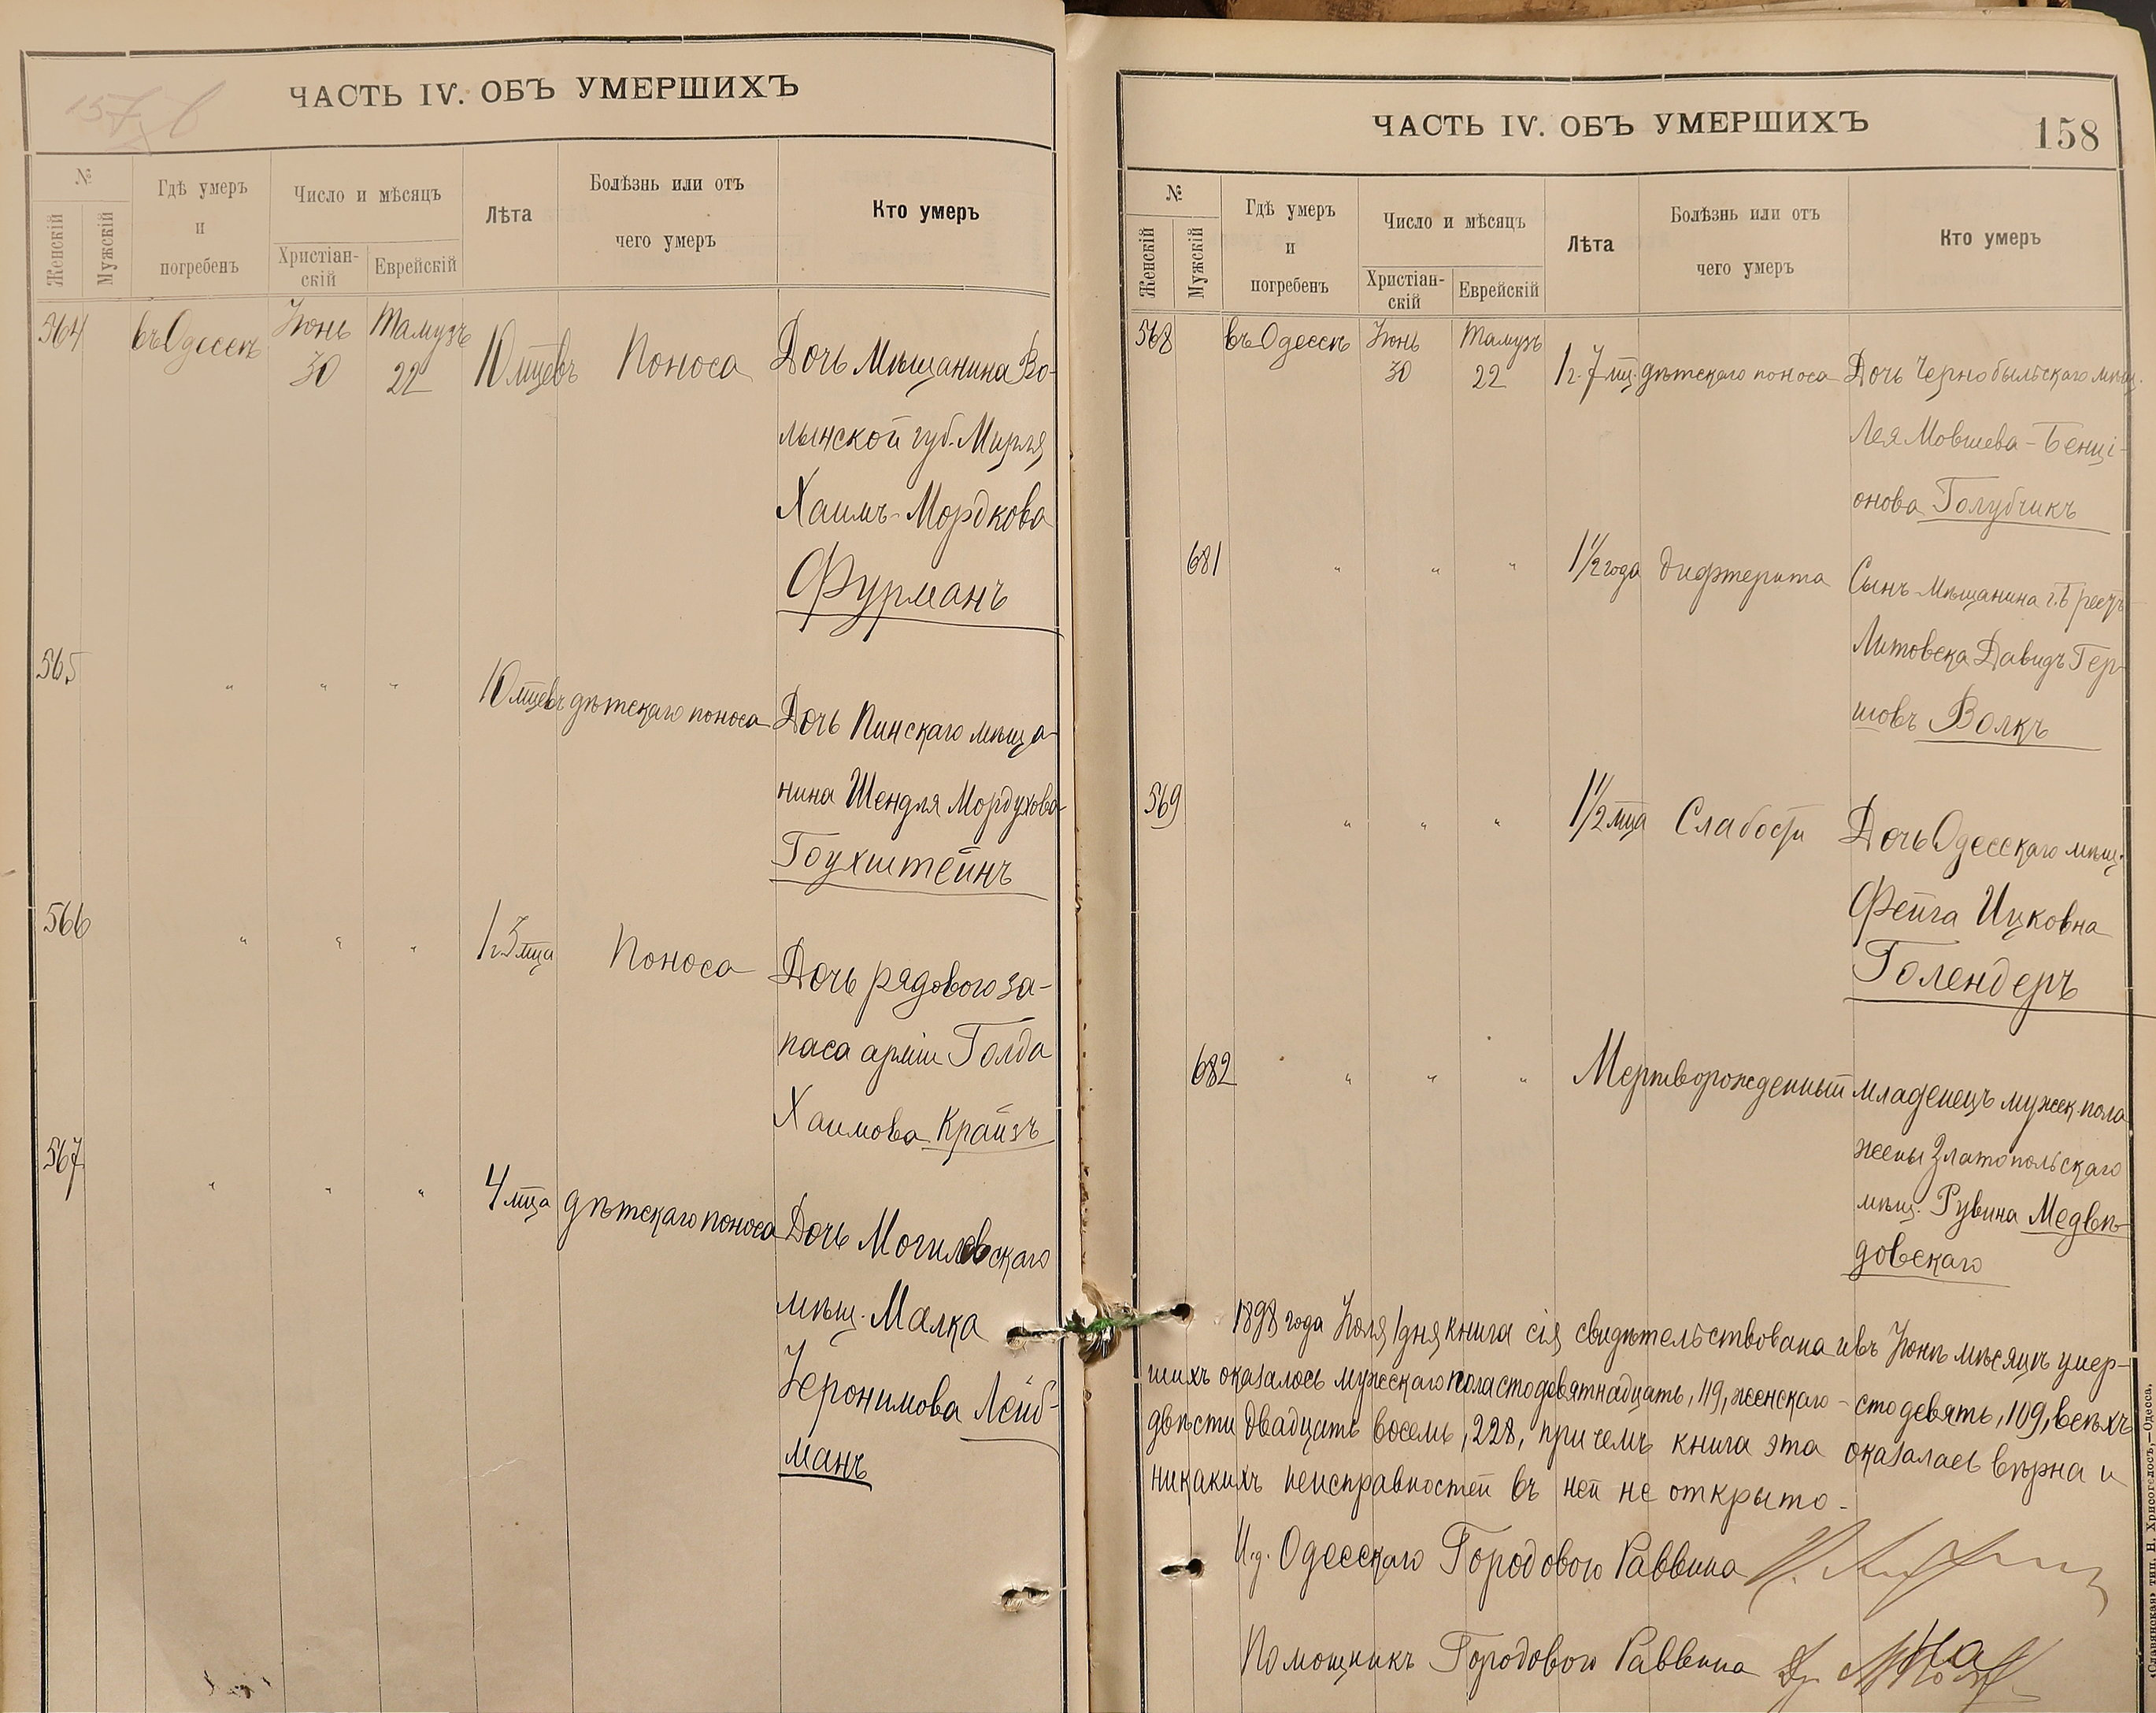 157 б
ЧАСТЬ IV. ОБЪ УМЕРШИХЪ
№
Женскій
Мужскій
Гдѣ умеръ
и
погребенъ
Число и мѣсяцъ
Христіан-
скій
Еврейскій
Лѣта
Болѣзнь или отъ
чего умеръ
Кто умеръ
564 въ Одессѣ Іюнь 30 Тамузъ 22 10 мцевъ Поноса Дочь Мѣщанина Во-
лынской губ. Мирля
Хаимъ-Мордкова
Фурманъ
565 " " " 10 мцевъ дѣтскаго поноса Дочь Пинскаго мѣща-
нина Шендля Мордухова
Гоухштейнъ
566 " " " 1 г. 3 мца Поноса Дочь рядового за-
паса арміи Голда
Хаимова Крайзъ
567 " " " 4 мца дѣтскаго поноса Дочь Могилевскаго
мѣщ. Малка
Іеронимова Лейб-
манъ
ЧАСТЬ IV. ОБЪ УМЕРШИХЪ
158
№
Женскій
Мужскій
Гдѣ умеръ
и
погребенъ
Число и мѣсяцъ
Христіан-
скій
Еврейскій
Лѣта
Болѣзнь или отъ
чего умеръ
Кто умеръ
568 въ Одессѣ Іюнь 30 Тамузъ 22 1 г. 7 мц. дѣтскаго поноса Дочь Чернобыльскаго мѣщ.
Лея Мовшева-Бенці-
онова Голубчикъ
681 " " " 1 1/2 года дифтерита Сынъ Мѣщанина г. Брестъ
Литовска Давидъ Гер-
шовъ Волкъ
569 " " " 1 1/2 мца Слабости Дочь Одесскаго мѣщ.
Фейга Ицковна
Голендеръ
682 " " " Мертворожденный младенецъ мужск. пола
жены Златопольскаго
мѣщ. Рувина Медвѣ-
довскаго
1898 года Іюля 1 дня книга сія свидѣтельствована и въ Іюнѣ мѣсяцѣ умер-
шихъ оказалось мужескаго пола сто девятнадцать, 119, женскаго - сто девять, 109, всѣхъ
двѣсти двадцать восемь, 228, при чемъ книга эта оказалась вѣрна и
никакихъ неисправностей въ ней не открыто.
И.д. Одесскаго Городового Раввина
Помощникъ Городового Раввина Др.
«Славянская» тип. Н. Хрисогелосъ,—Одесса,